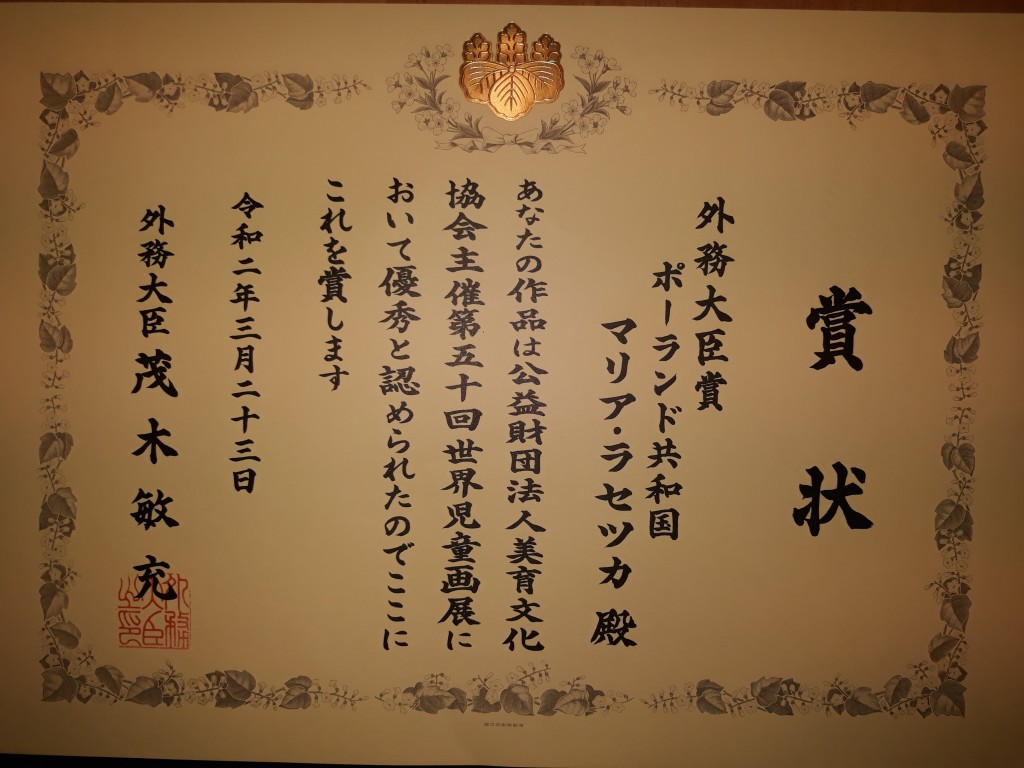 賞状
外務大臣賞
ポーランド共和国
マリア・ラセツカ 殿
あなたの作品は公益財団法人美育文化
協会主催第五十回世界児童画展に
おいて優秀と認められたのでここに
これを賞します
令和二年三月二十三日
外務大臣 茂木敏充
外務大臣之印